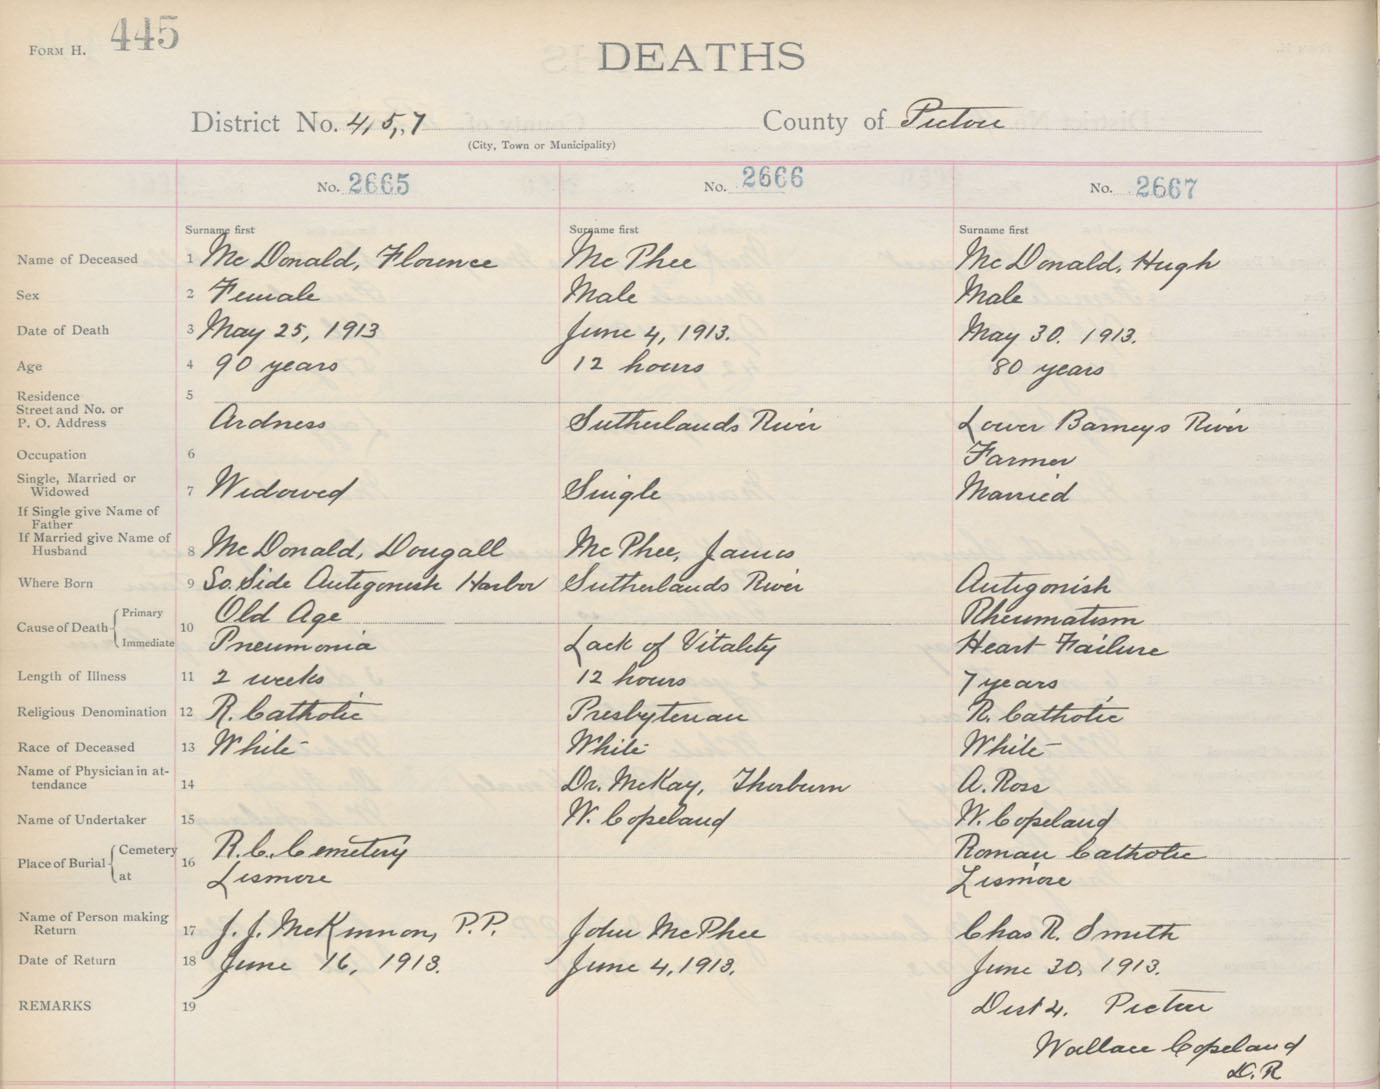 FORM H. 445
DEATHS
District No. 4, 5, 7 County of Pictou
(City, Town or Municipality)
No. 2665 No. 2666 No. 2667
Surname first Surname first Surname first
Name of Deceased 1 Mc Donald, Florence Mc Phee Mc Donald, Hugh
Sex 2 Female Male Male
Date of Death 3 May 25, 1913 June 4, 1913. May 30. 1913.
Age 4 90 years 12 hours 80 years
Residence 5
Street and No. or
P. O. Address Ardness Sutherlands River Lower Barneys River
Occupation 6 Farmer
Single, Married or
Widowed 7 Widowed Single Married
If Single give Name of
Father
If Married give Name of
Husband 8 Mc Donald, Dougall Mc Phee, James
Where Born 9 So. Side Antigonish Harbor Sutherlands River Antigonish
Cause of Death { Primary 10 Old Age Rheumatism
Immediate Pneumonia Lack of Vitality Heart Failure
Length of Illness 11 2 weeks 12 hours 7 years
Religious Denomination 12 R. Catholic Presbyterian R. Catholic
Race of Deceased 13 White White White
Name of Physician in at-
tendance 14 Dr. McKay, Thorburn A. Ross
Name of Undertaker 15 W. Copeland W. Copeland
Place of Burial { Cemetery 16 R. C. Cemetery Roman Catholic
at Lismore Lismore
Name of Person making
Return 17 J. J. McKinnon, P.P. John McPhee Chas R. Smith
Date of Return 18 June 16, 1913. June 4, 1913. June 30, 1913.
REMARKS 19 Dist 4. Pictou
Wallace Copeland
D. R